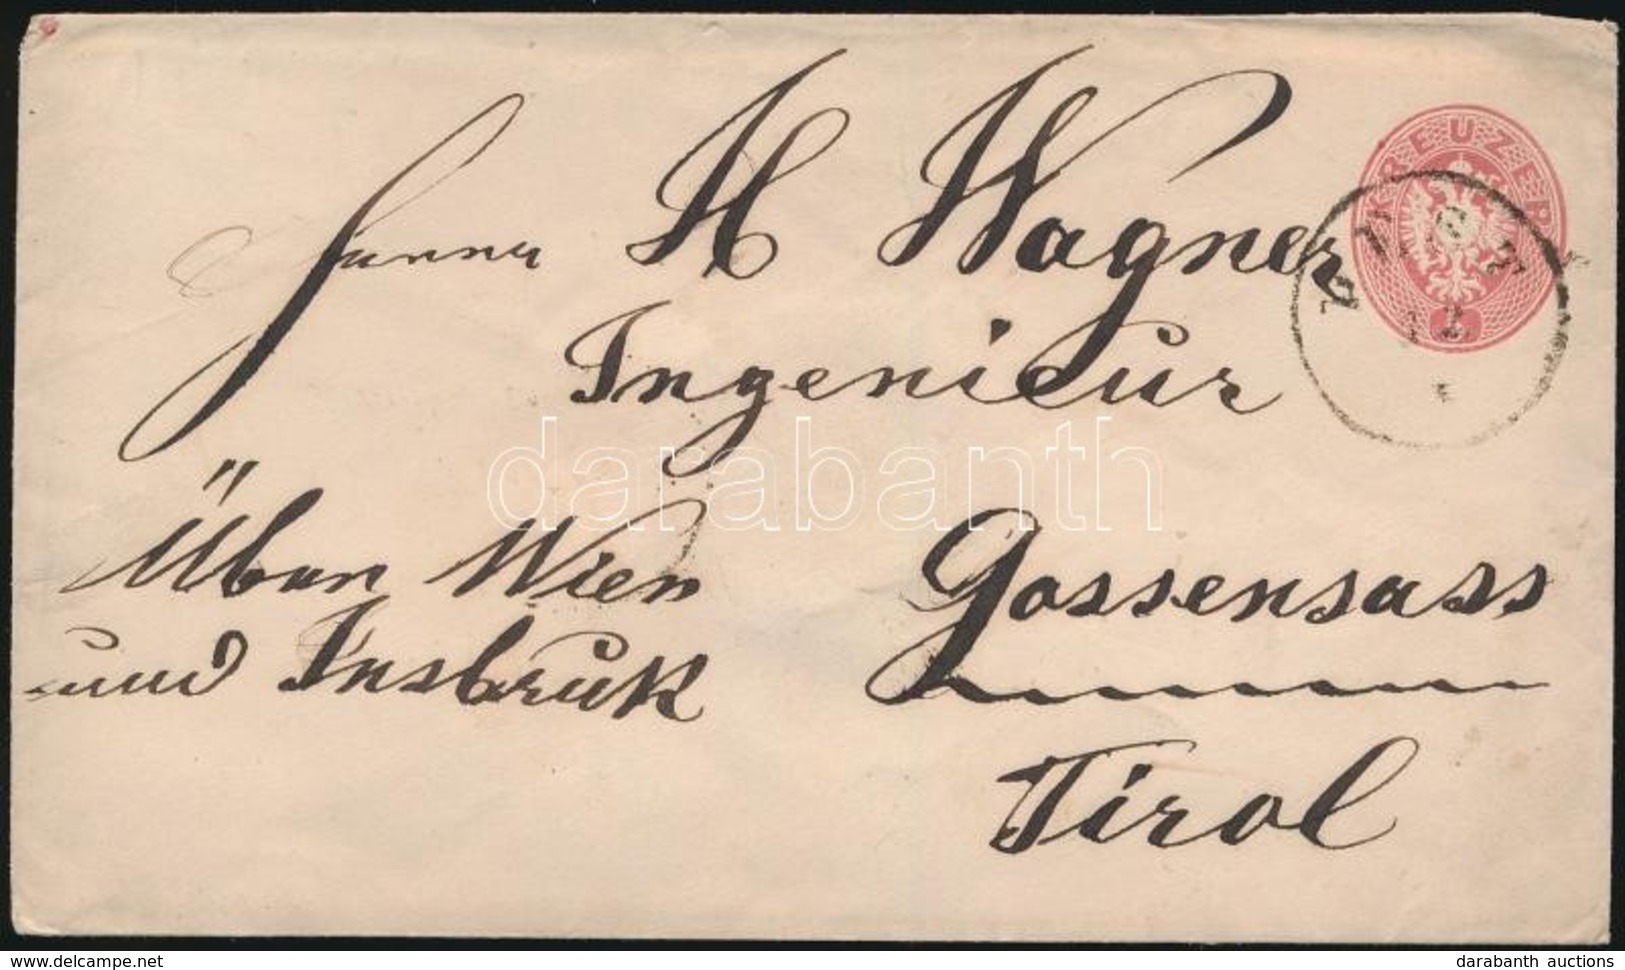 Herrn H Wagner
Ingenieur
Über Wien
und Insbruk
Gossensass
Tirol
KREUZER
darabanth
www.delcampe.net
darabanth auctions